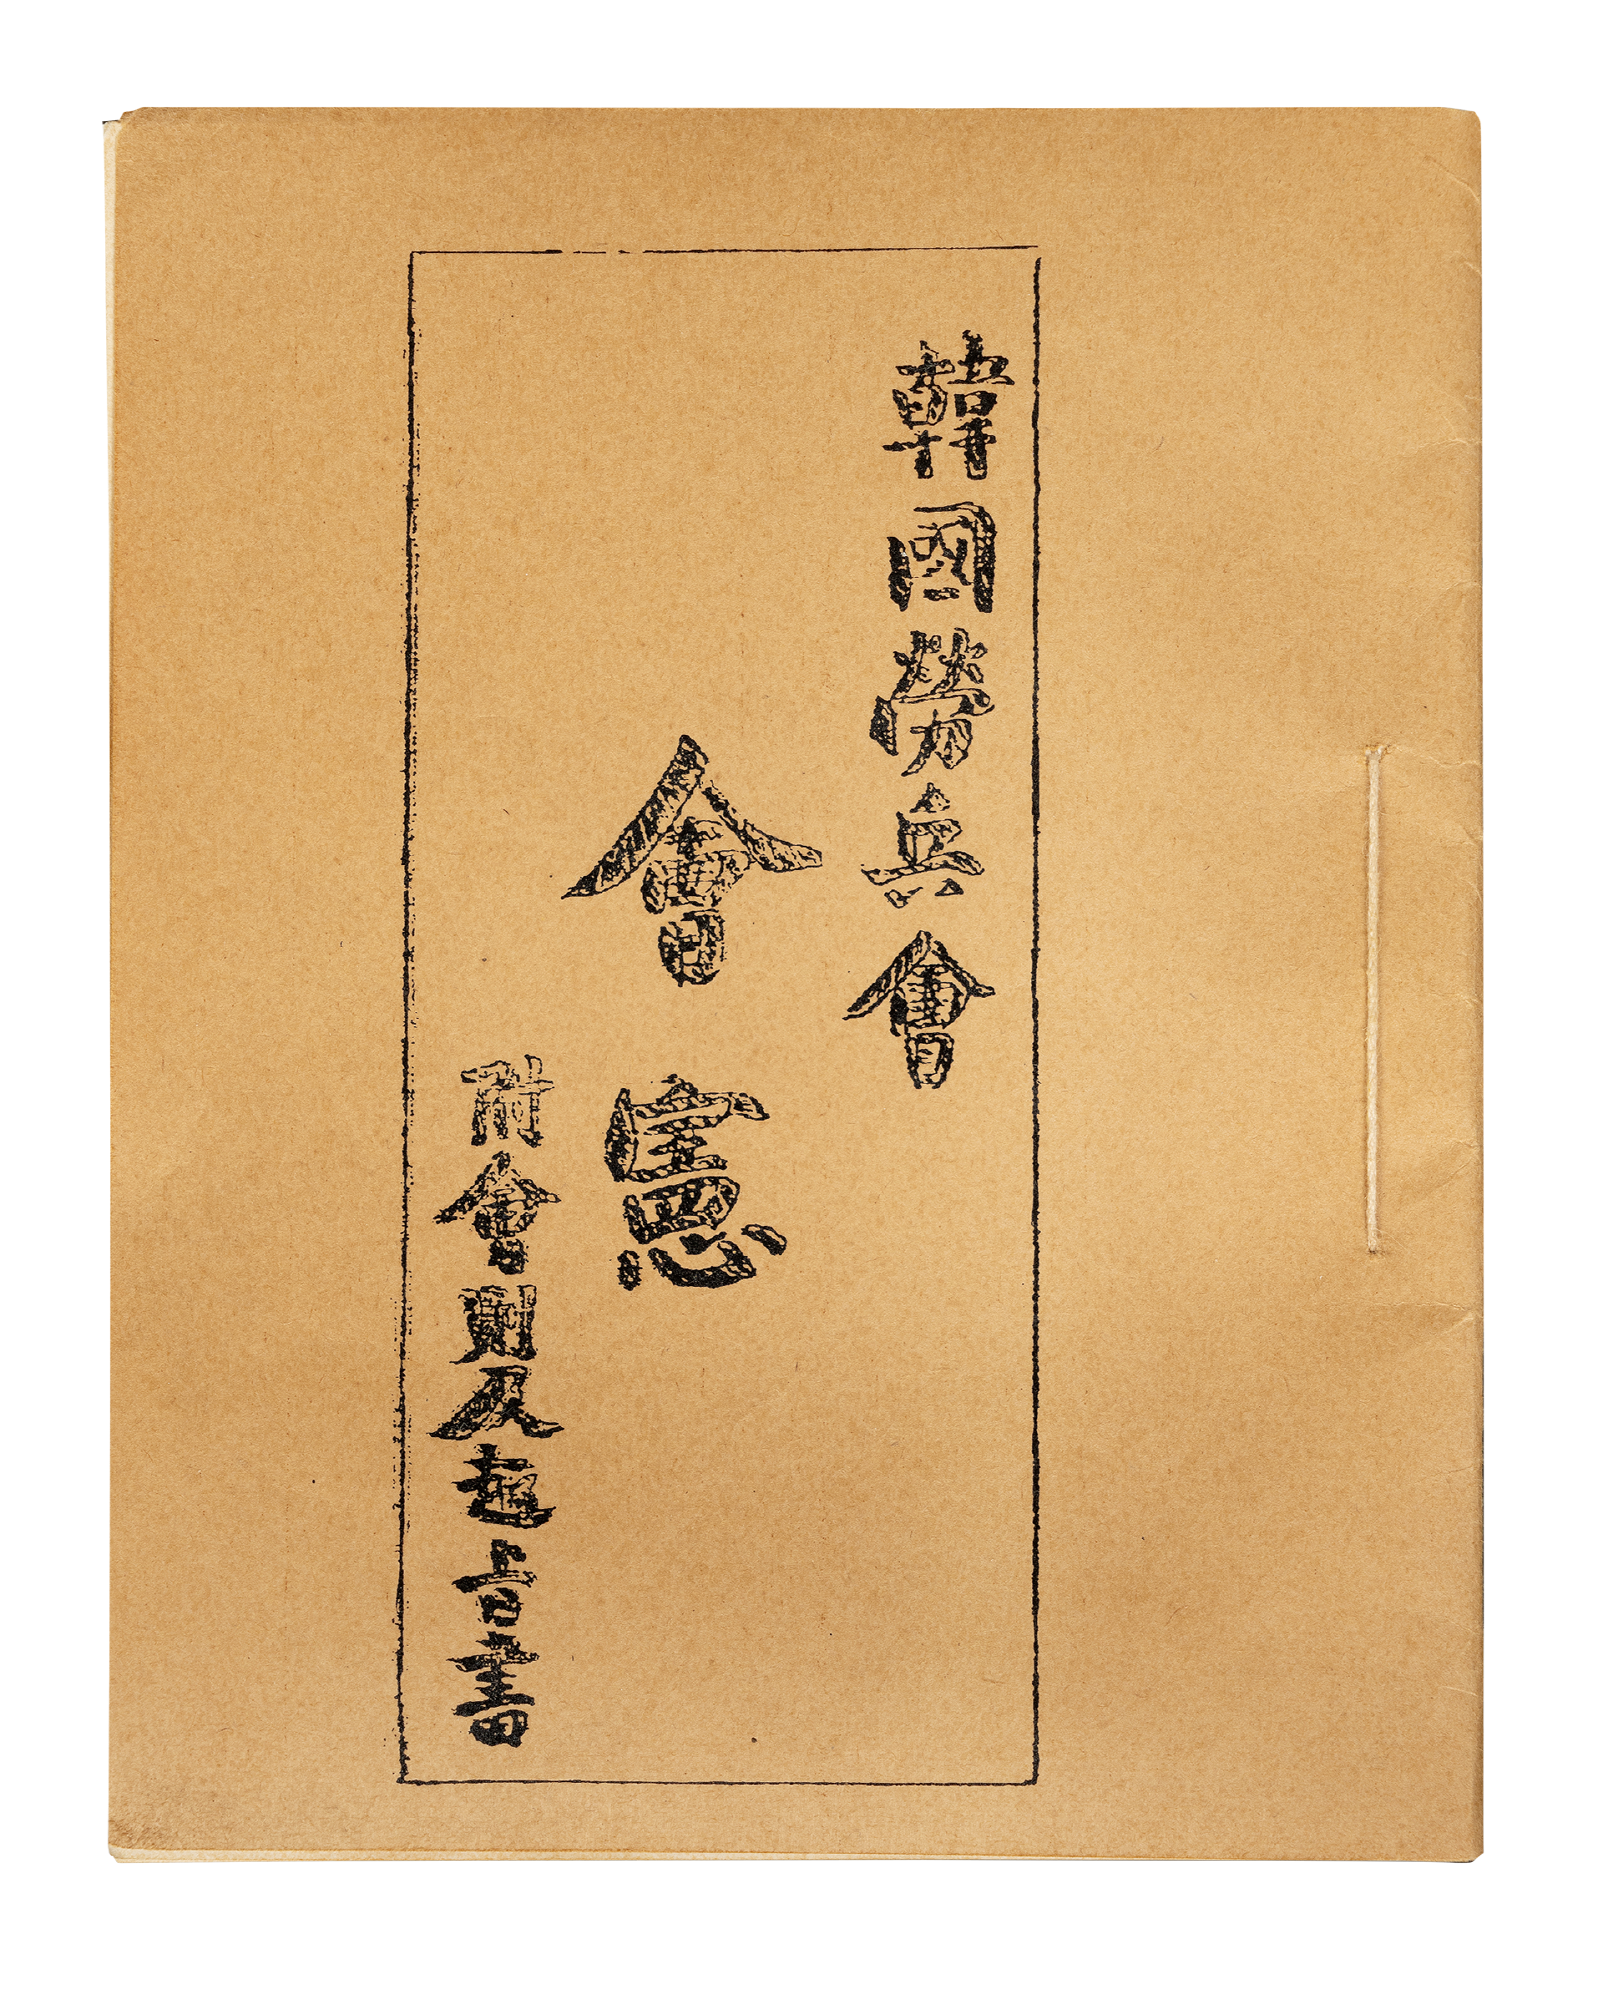 韓國勞兵會
會憲
附會則及趣旨書